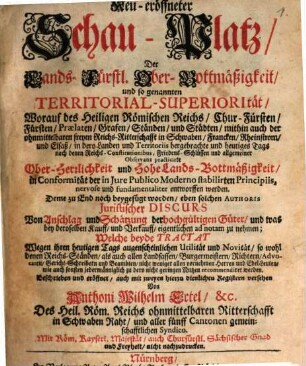 Neu-eröffneter
Schau-Platz/
Der
Lands-Fürstl. Ober-Bottmäßigkeit/
und so genannten
TERRITORIAL-SUPERIORItät/
Worauf des Heiligen Römischen Reichs/ Chur-Fürsten/
Fürsten/ Prælaten/ Grafen/ Ständen/ und Städten/ mithin auch der
ohnmittelbaren freyen Reichs-Ritterschafft in Schwaben/ Francken/ Rheinstrom/
und Elsaß/ in dero Landen und Territoriis hergebrachte und heutiges Tags
nach denen Reichs-Constitutionibus, Friedens-Schlüssen und allgemeiner
Observanz practicirte
Ober-Herrlichkeit und Hohe Lands-Bottmäßigkeit/
in Conformität der in Jure Publico Moderno stabilirten Principiis,
nervose und fundamentaliter entworffen werden.
Deme zu End noch beygefügt worden/ eben solchen AUTHORIS
Juristischer DISCURS
Von Anschlag und Schätzung der hochgültigen Güter/ und was
bey derselben Kauff/ und Verkauff/ eigentlichen ad notam zu nehmen;
Welche beyde TRACTAT
Wegen ihren heutigen Tags augenscheinlichen Utilität und Novität/ so wohl
denen Reichs-Ständen/ als auch allen Landsassen/ Burgermeistern/ Richtern/ Advo-
caten/ Gerichts-Schreibern und Beamten/ nicht weniger allen vornehmen Herren und Gelehrten/
wie auch sonsten jedermänniglich zu dero nicht geringen Nutzen recommendirt werden.
Beschrieben und eröffnet/ auch mit zweyen hierzu dienlichen Registern versehen
Von
Anthoni Wilhelm Ertel/ &c.
Des Heil. Röm. Reichs ohnmittelbaren Ritterschafft
in Schwaben Raht/ und aller fünff Cantonen gemein-
schafftlichen Syndico.
Mit Röm. Kayserl. Majestät/ auch Churfürstl. Sächsischer Gnad
und Freyheit/ nicht nachzudrucken.
Nürnberg/